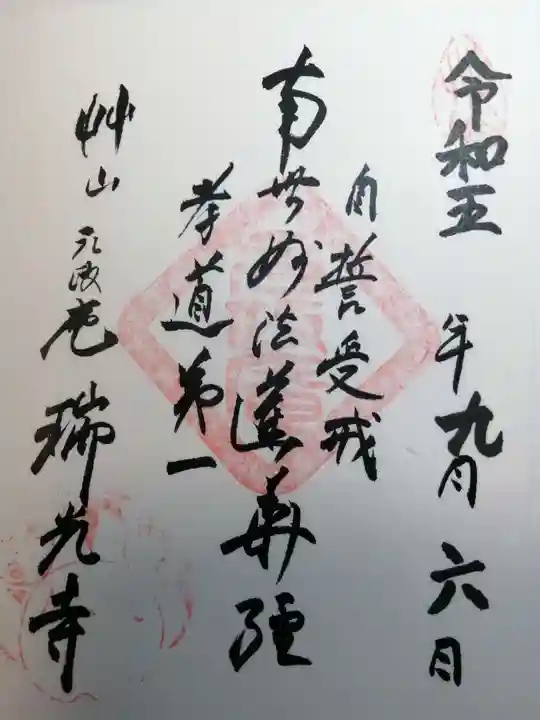 令和五年九月六日
自誓受戒
南無妙法蓮華経
孝道第一
艸山元政庵瑞光寺